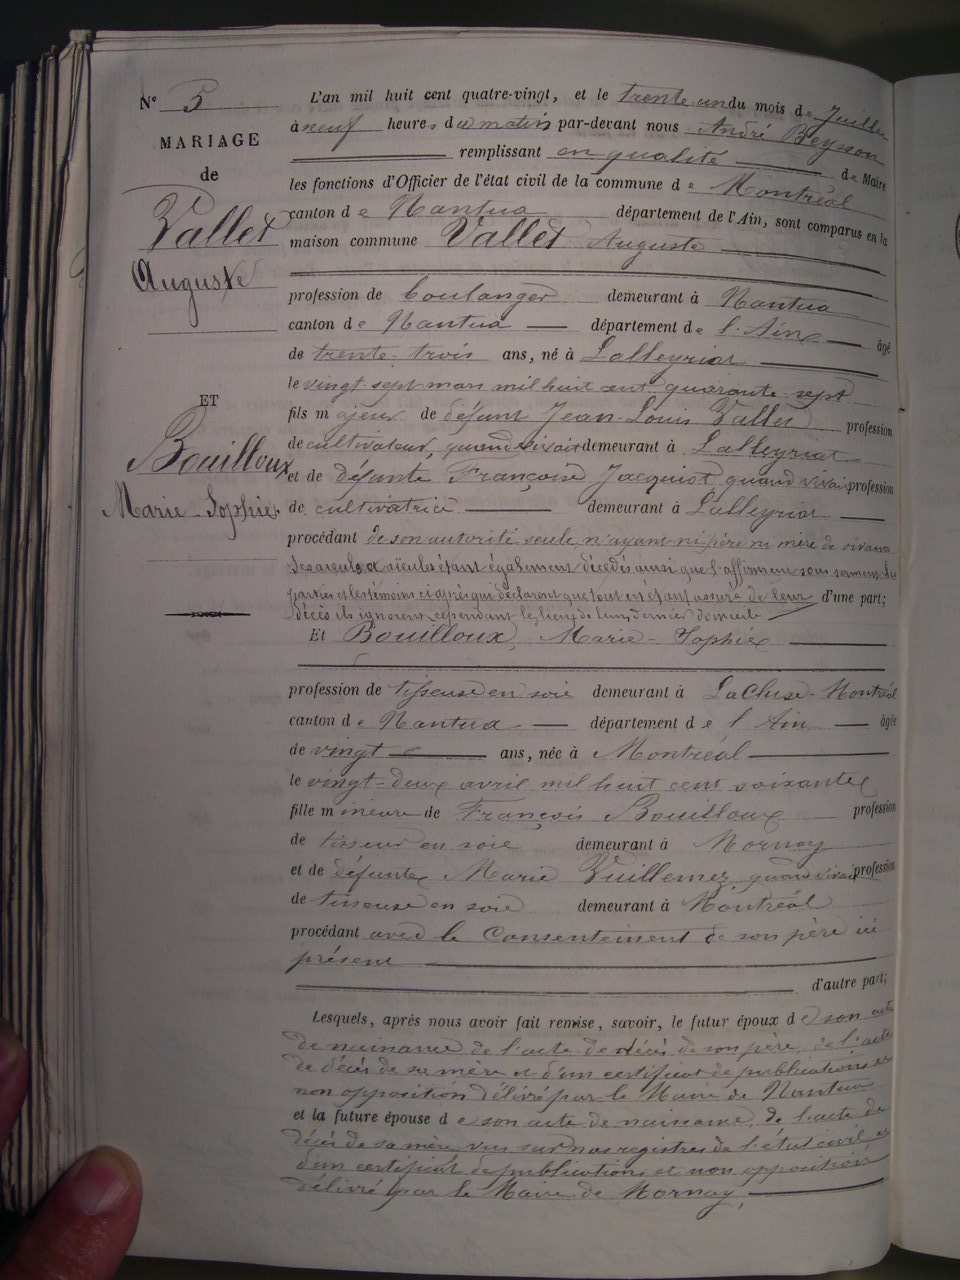 N° 5
MARIAGE
de
Vallet
Auguste
ET
Bouilloux
Marie-Sophie
L'an mil huit cent quatre-vingt, et le trente un du mois de Juillet
à neuf heures du matin par-devant nous André Beysson
remplissant en qualité de Maire
les fonctions d'Officier de l'état civil de la commune de Montréal
canton de Nantua département de l'Ain, sont comparus en la
maison commune Vallet Auguste
profession de boulanger demeurant à Nantua
canton de Nantua département de l'Ain âgé
de trente-trois ans, né à Lalleyriat
le vingt-sept mars mil huit cent quarante-sept
fils majeur de défunt Jean-Louis Vallet profession
de cultivateur, quand vivait demeurant à Lalleyriat
et de défunte Françoise Jacquiot quand vivait profession
de cultivatrice demeurant à Lalleyriat
procédant de son autorité seule n'ayant ni père ni mère de vivants
Ses aïeuls et aïeules étant également décédés ainsi que l'affirment sous serment les
parties et les témoins ci-après qui déclarent que tout en étant assurés de leur d'une part;
décès ils ignorent cependant les lieux de leurs derniers domicile
Et Bouilloux, Marie-Sophie
profession de tisseuse en soie demeurant à La Cluse-Montréal
canton de Nantua département de l'Ain âgée
de vingt ans, née à Montréal
le vingt-deux avril mil huit cent soixante
fille mineure de François Bouilloux profession
de tisseur en soie demeurant à Mornay
et de défunte Marie Vuillemez, quand vivait profession
de tisseuse en soie demeurant à Montréal
procédant avec le consentement de son père ici
présent
d'autre part;
Lesquels, après nous avoir fait remise, savoir, le futur époux de son acte
de naissance de l'acte de décès de son père, de l'acte
de décès de sa mère et d'un certificat de publications et
non opposition délivré par le Maire de Nantua
et la future épouse de son acte de naissance, de l'acte de
décès de sa mère, vus sur nos registres de l'état civil et
d'un certificat de publications et non opposition
délivré par le Maire de Mornay,